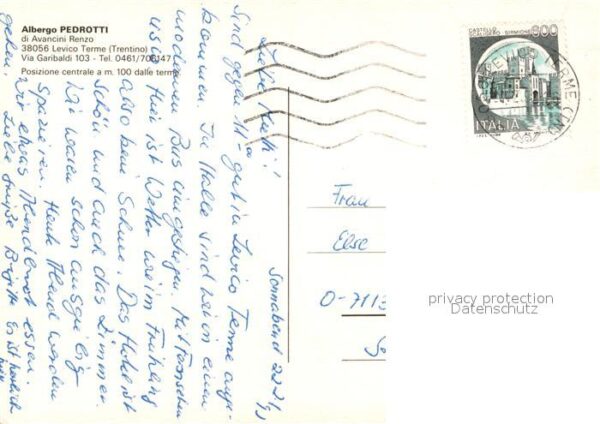 Albergo PEDROTTI
di Avancini Renzo
38056 Levico Terme (Trentino)
Via Garibaldi 103 - Tel. 0461/706147
Posizione centrale a m. 100 dalle terme
800
ITALIA
TERME
Sonnabend 22.2.
Liebe
sind gegen 11 gut in Levico Terme ange-
kommen. In Halle sind wir in einen
modernen Bus umgestiegen. Mit Fernsehen
usw. Hier ist Wetter wie im Frühling
Also kein Schnee. Das Hotel ist
schön und auch das Zimmer.
Wir waren schon ausgiebig
spazieren. Heute Abend werden
wir etwas Abendbrot essen.
gehen. Liebe Grüße Brigitte
Es ist herrlich
hier
Frau
Else
O-7113
privacy protection
Datenschutz